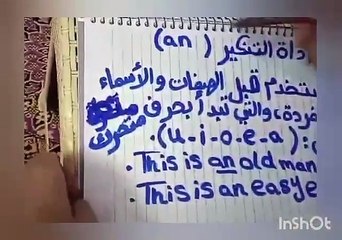 داة التنكير (an)
تخدم قبل الصفات والأسماء
فردة، والتي تبدأ بحرف متحرك
(u-i-o-e-a) :
. This is an old man
. This is an easy e
InShOt